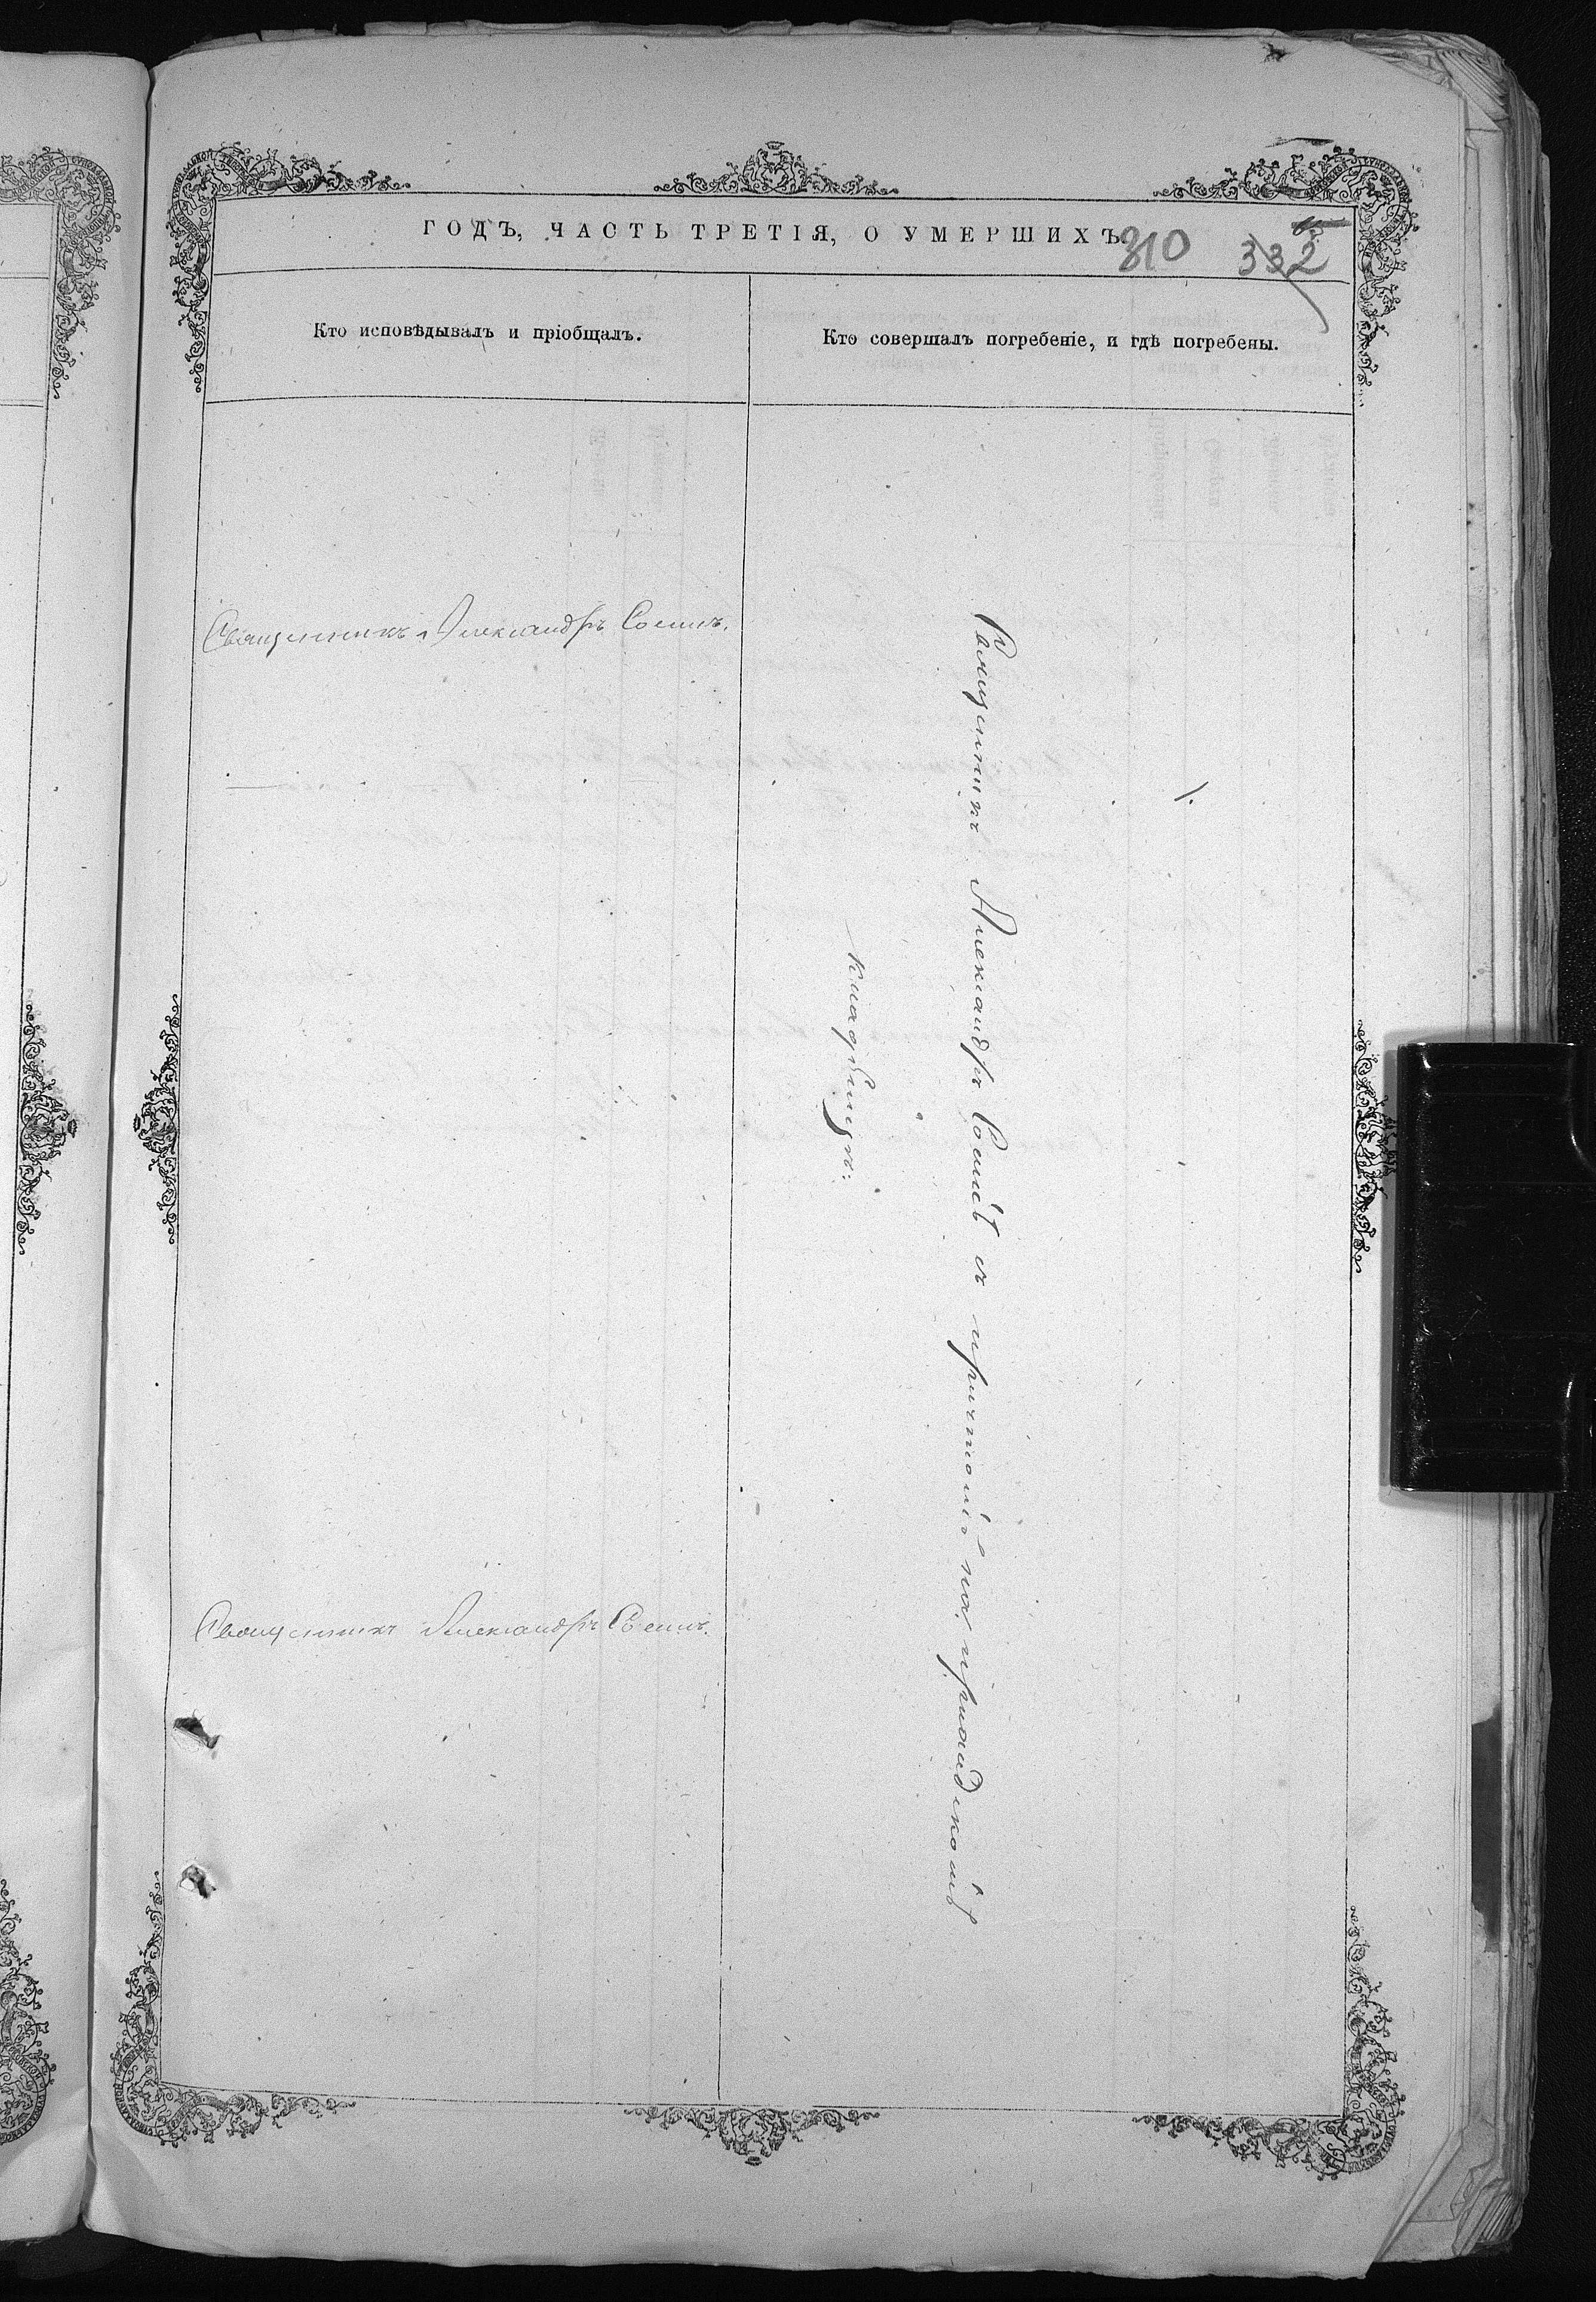 ГОДЪ, ЧАСТЬ ТРЕТІЯ, О УМЕРШИХЪ
310 332
Кто исповѣдывалъ и пріобщалъ.
Кто совершалъ погребеніе, и гдѣ погребены.
Священникъ Александръ
Священникъ Александръ
Священникъ Александръ съ причтомъ на приходскомъ
кладбищѣ.